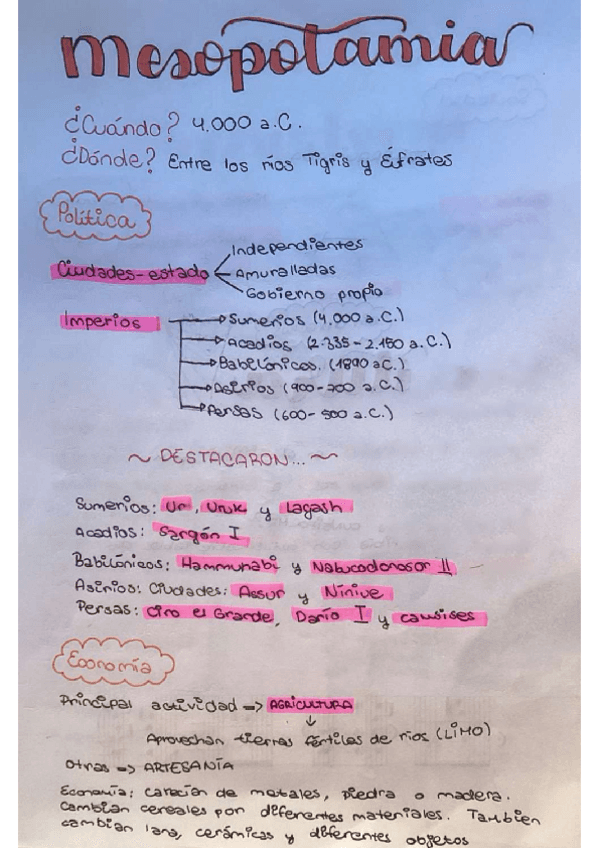 mesopotamia
¿Cuándo? 4.000 a.C.
¿Dónde? Entre los ríos Tigris y Éufrates
Política
Ciudades-estado
Independientes
Amuralladas
Gobierno propio
Imperios
Sumerios (4.000 a.C.)
Acadios (2.335-2.180 a.C.)
Babilónicos. (1890 a.C.)
Asirios (900-700 a.C.)
Persas (600-500 a.C.)
~ DESTACARON... ~
Sumerios: Ur, Uruk y Lagash
Acadios: Sargón I
Babilónicos: Hammurabi y Nabucodonosor II
Asirios: Ciudades: Assur y Nínive
Persas: Ciro el Grande, Darío I y causises
Economía
Principal actividad => AGRICULTURA
Aprovechan tierras fértiles de ríos (LIMO)
Otras => ARTESANÍA
Economía: carecían de metales, piedra o madera.
Cambian cereales por diferentes materiales. También
cambian lana, cerámicas y diferentes objetos